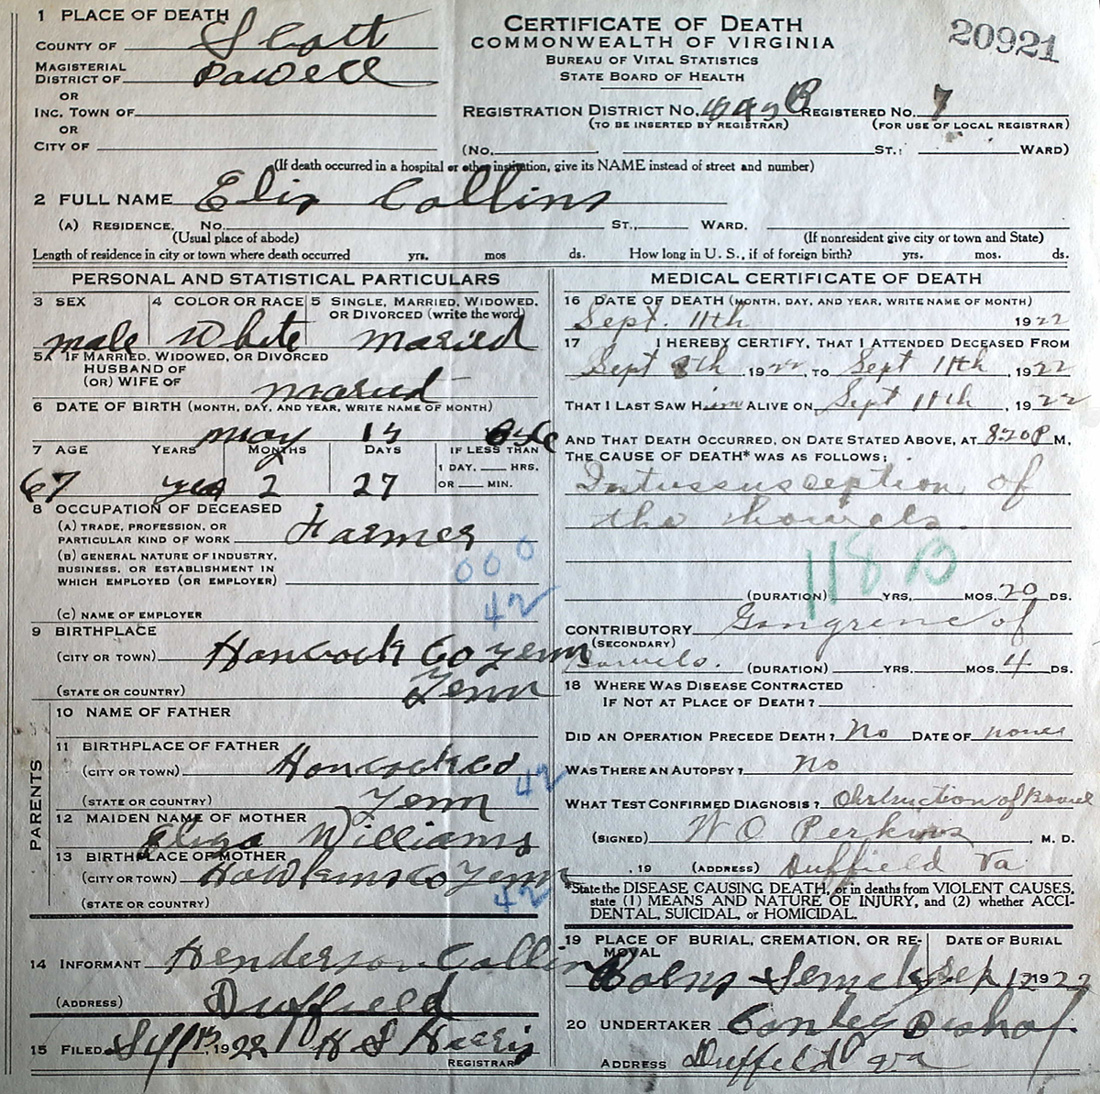 CERTIFICATE OF DEATH
COMMONWEALTH OF VIRGINIA
BUREAU OF VITAL STATISTICS
STATE BOARD OF HEALTH
20921
1 PLACE OF DEATH
COUNTY OF Scott
MAGISTERIAL DISTRICT OF Powell
OR
INC. TOWN OF
OR
CITY OF
REGISTRATION DISTRICT No. B REGISTERED No. 7
(TO BE INSERTED BY REGISTRAR) (FOR USE OF LOCAL REGISTRAR)
(No. ST.; WARD)
(If death occurred in a hospital or other institution, give its NAME instead of street and number)
2 FULL NAME Collins
(A) RESIDENCE, No. ST., WARD.
(Usual place of abode) (If nonresident give city or town and State)
Length of residence in city or town where death occurred yrs. mos ds. How long in U. S., if of foreign birth? yrs. mos. ds.
PERSONAL AND STATISTICAL PARTICULARS
3 SEX 4 COLOR OR RACE 5 SINGLE, MARRIED, WIDOWED, OR DIVORCED (write the word)
male White maried
5A IF MARRIED, WIDOWED, OR DIVORCED
HUSBAND OF
(OR) WIFE OF maried
6 DATE OF BIRTH (MONTH, DAY, AND YEAR, WRITE NAME OF MONTH)
may
7 AGE YEARS MONTHS DAYS IF LESS THAN
1 DAY, HRS.
OR MIN.
67 yea 2 27
8 OCCUPATION OF DECEASED
(A) TRADE, PROFESSION, OR
PARTICULAR KIND OF WORK Farmer
(B) GENERAL NATURE OF INDUSTRY,
BUSINESS, OR ESTABLISHMENT IN
WHICH EMPLOYED (OR EMPLOYER)
000
42
(C) NAME OF EMPLOYER
9 BIRTHPLACE
(CITY OR TOWN) Hancock Co Tenn
(STATE OR COUNTRY) Tenn
PARENTS
10 NAME OF FATHER
11 BIRTHPLACE OF FATHER
(CITY OR TOWN) Hancock co
42
(STATE OR COUNTRY) Tenn
12 MAIDEN NAME OF MOTHER
Eliza Williams
13 BIRTHPLACE OF MOTHER
(CITY OR TOWN) Hawkins Co Tenn
(STATE OR COUNTRY) 42
14 INFORMANT Henderson Collins
(ADDRESS) Duffield
15 FILED 1922 H S Harris
REGISTRAR
MEDICAL CERTIFICATE OF DEATH
16 DATE OF DEATH (MONTH, DAY, AND YEAR, WRITE NAME OF MONTH)
Sept. 11th 1922
17 I HEREBY CERTIFY, THAT I ATTENDED DECEASED FROM
Sept 8th, 1922, TO Sept 11th, 1922
THAT I LAST SAW Him ALIVE ON Sept 11th, 1922
AND THAT DEATH OCCURRED, ON DATE STATED ABOVE, AT 820 P M.
THE CAUSE OF DEATH* WAS AS FOLLOWS:
Intussusception of
the bowels.
118 B
(DURATION) YRS. MOS. 20 DS.
CONTRIBUTORY Gangrene of
(SECONDARY)
Bowels. (DURATION) YRS. MOS. 4 DS.
18 WHERE WAS DISEASE CONTRACTED
IF NOT AT PLACE OF DEATH?
DID AN OPERATION PRECEDE DEATH? No DATE OF none
WAS THERE AN AUTOPSY? no
WHAT TEST CONFIRMED DIAGNOSIS? Obstruction of Bowel
(SIGNED) W O Perkins M. D.
, 19 (ADDRESS) Duffield Va
*State the DISEASE CAUSING DEATH, or in deaths from VIOLENT CAUSES,
state (1) MEANS AND NATURE OF INJURY, and (2) whether ACCI-
DENTAL, SUICIDAL, or HOMICIDAL.
19 PLACE OF BURIAL, CREMATION, OR RE-MOVAL DATE OF BURIAL
Sep 12 1922
20 UNDERTAKER Conley Bishop
ADDRESS Duffield Va